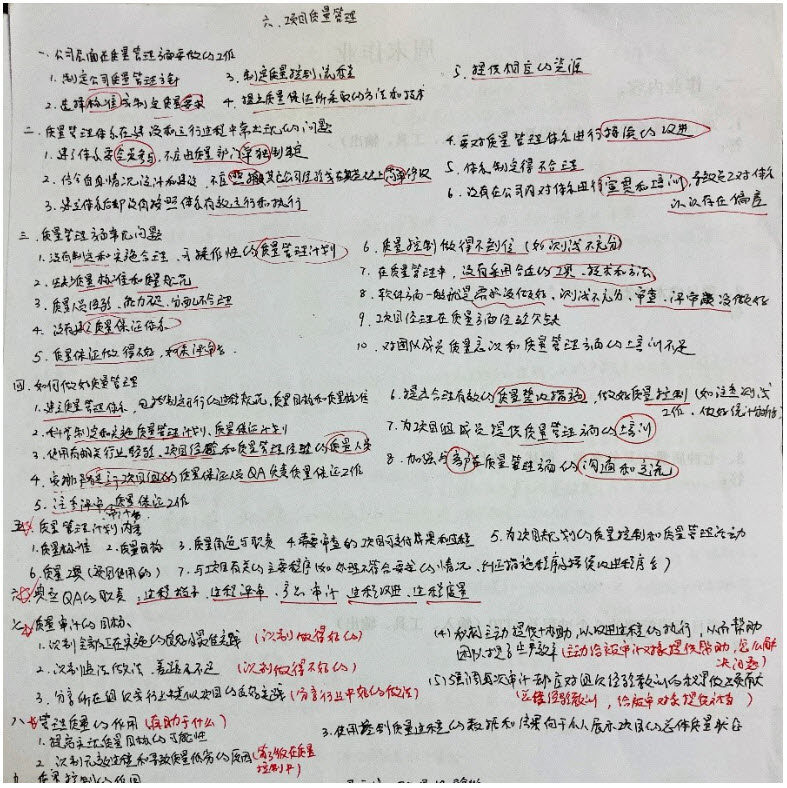 六、项目质量管理
一、公司层面在质量管理方面要做的工作
1. 制定公司质量管理方针
3. 制定质量控制流程
5. 提供相应的资源
2. 选择标准或制定质量要求
4. 提出质量保证所采取的方法和技术
二、质量管理体系在建设和运行过程中常出现的问题
1. 建立体系要全员参与,不应由质量部门单独制定
4. 要对质量管理体系进行持续的改进
2. 结合自身情况设计和建设,不应照搬其它公司经验或在其基础上简单修改
5. 体系制定得不合理
3. 建立体系后却没有按照体系有效运行和执行
6. 没有在公司内对体系进行宣贯和培训,导致员工对体系
认识存在偏差
三、质量管理方面常见问题
1. 没有制定和实施合理、可操作性的质量管理计划
6. 质量控制做得不到位(如测试不充分)
2. 缺少质量标准和规范
7. 在质量管理中,没有采用合适的工具、技术和方法
3. 质量人员经验、能力不足,分配不合理
8. 软件方面一般就是需求没做好,测试不充分,审查、评审没做好
4. 没有建立质量保证体系
9. 项目经理在质量方面经验欠缺
5. 质量保证做得不好,如未评审
10. 对团队成员质量意识和质量管理方面的培训不足
四、如何做好质量管理
1. 建立质量管理体系,包括制定可行的过程规范,质量目标和质量标准
6. 提出合理有效的质量整改措施,做好质量控制(如注意测试
工作,做好统计分析)
2. 科学制定和实施质量管理计划,质量保证计划
7. 为项目组成员提供质量管理方面的培训
3. 使用有相关行业经验、项目经验和质量管理经验的质量人员
8. 加强与客户等质量管理方面的沟通和交流
4. 安排独立于项目组的质量保证人员QA负责质量保证工作
5. 注意评审、质量保证工作
审计等
五、质量管理计划内容
1. 质量标准 2. 质量目标 3. 质量角色与职责 4. 需要审查的项目可交付成果和过程 5. 为项目规划的质量控制和质量管理活动
6. 质量工具(项目使用的) 7. 与项目有关的主要程序(如处理不符合要求的情况、纠正措施程序、持续改进程序等)
六、典型QA的职责:过程指导、过程评审、产品审计、过程改进、过程度量
七、质量审计的目标、
1. 识别全部正在实施的良好和最佳实践(识别做得好的)
(4) 积极主动提供协助,以改进过程的执行,从而帮助
团队提高生产效率(主动给被审计对象提供帮助,怎么解
决问题)
2. 识别违法做法、差距及不足(识别做得不好的)
(5) 强调每次审计都应对组织经验教训的积累做出贡献
(总结经验教训,给被审对象提供改善)
3. 分享所在组织或行业中类似项目的良好实践(分享行业中好的做法)
八、管理质量的作用(有助于什么)
1. 提高实现质量目标的可能性
3. 使用控制质量过程的数据和结果向干系人展示项目的总体质量状态
2. 识别无效过程和导致质量低劣的原因
九、质量控制的作用